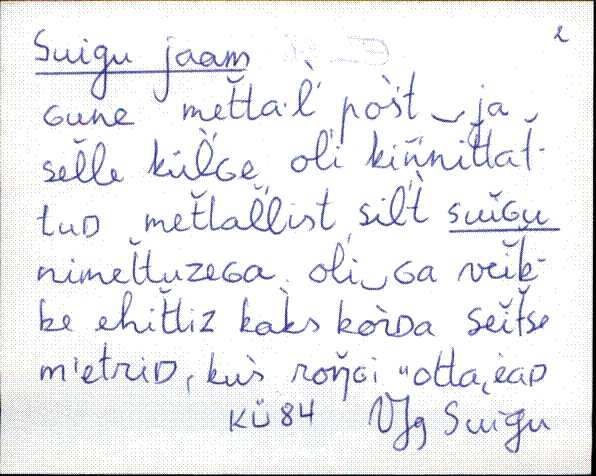 2
Suigu jaam
Gune met̆ta·l̀' pòs't ‿ ja
sĕlle kùl̆Ge oli kin̆nit̆tat-
tuD met̆tal̆list sil't̀ suĭGu
nimet̆tuzeGa. oli‿Ga veik̆-
ke ehit̆tiz kàks kòrDa seit̆se
m'etriD, kus roŋ̆Gi "otta,eaD
KÜ 84 VJg Suigu